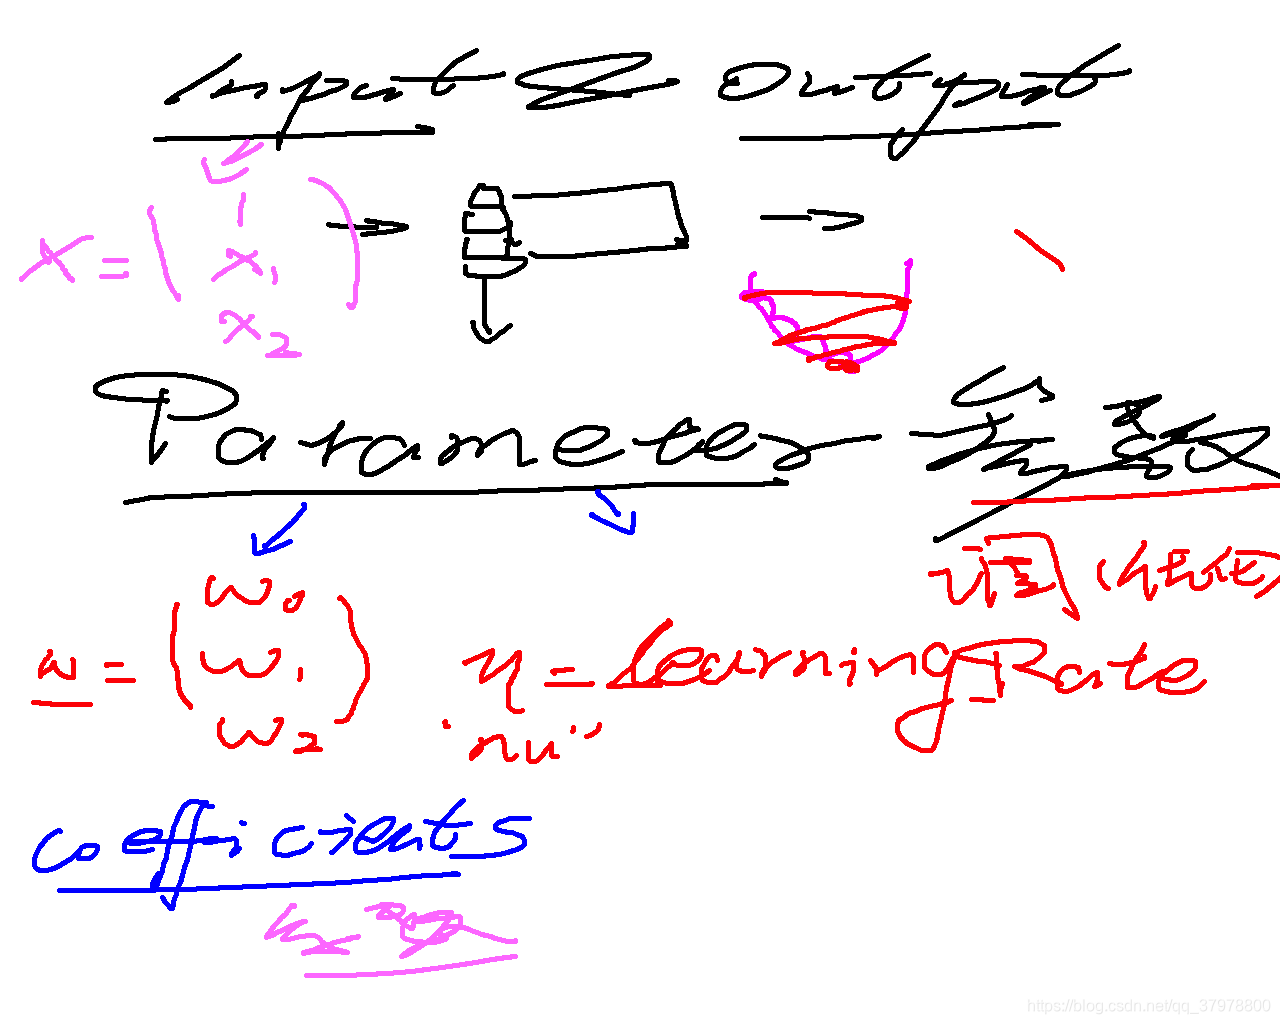 Input & Output
x = ( 1
x1
x2 )
Parameter 参数
调 (经验)
w = ( w0
w1
w2 )
η = Learning Rate
"nu"
coefficients
系数
https://blog.csdn.net/qq_37978800